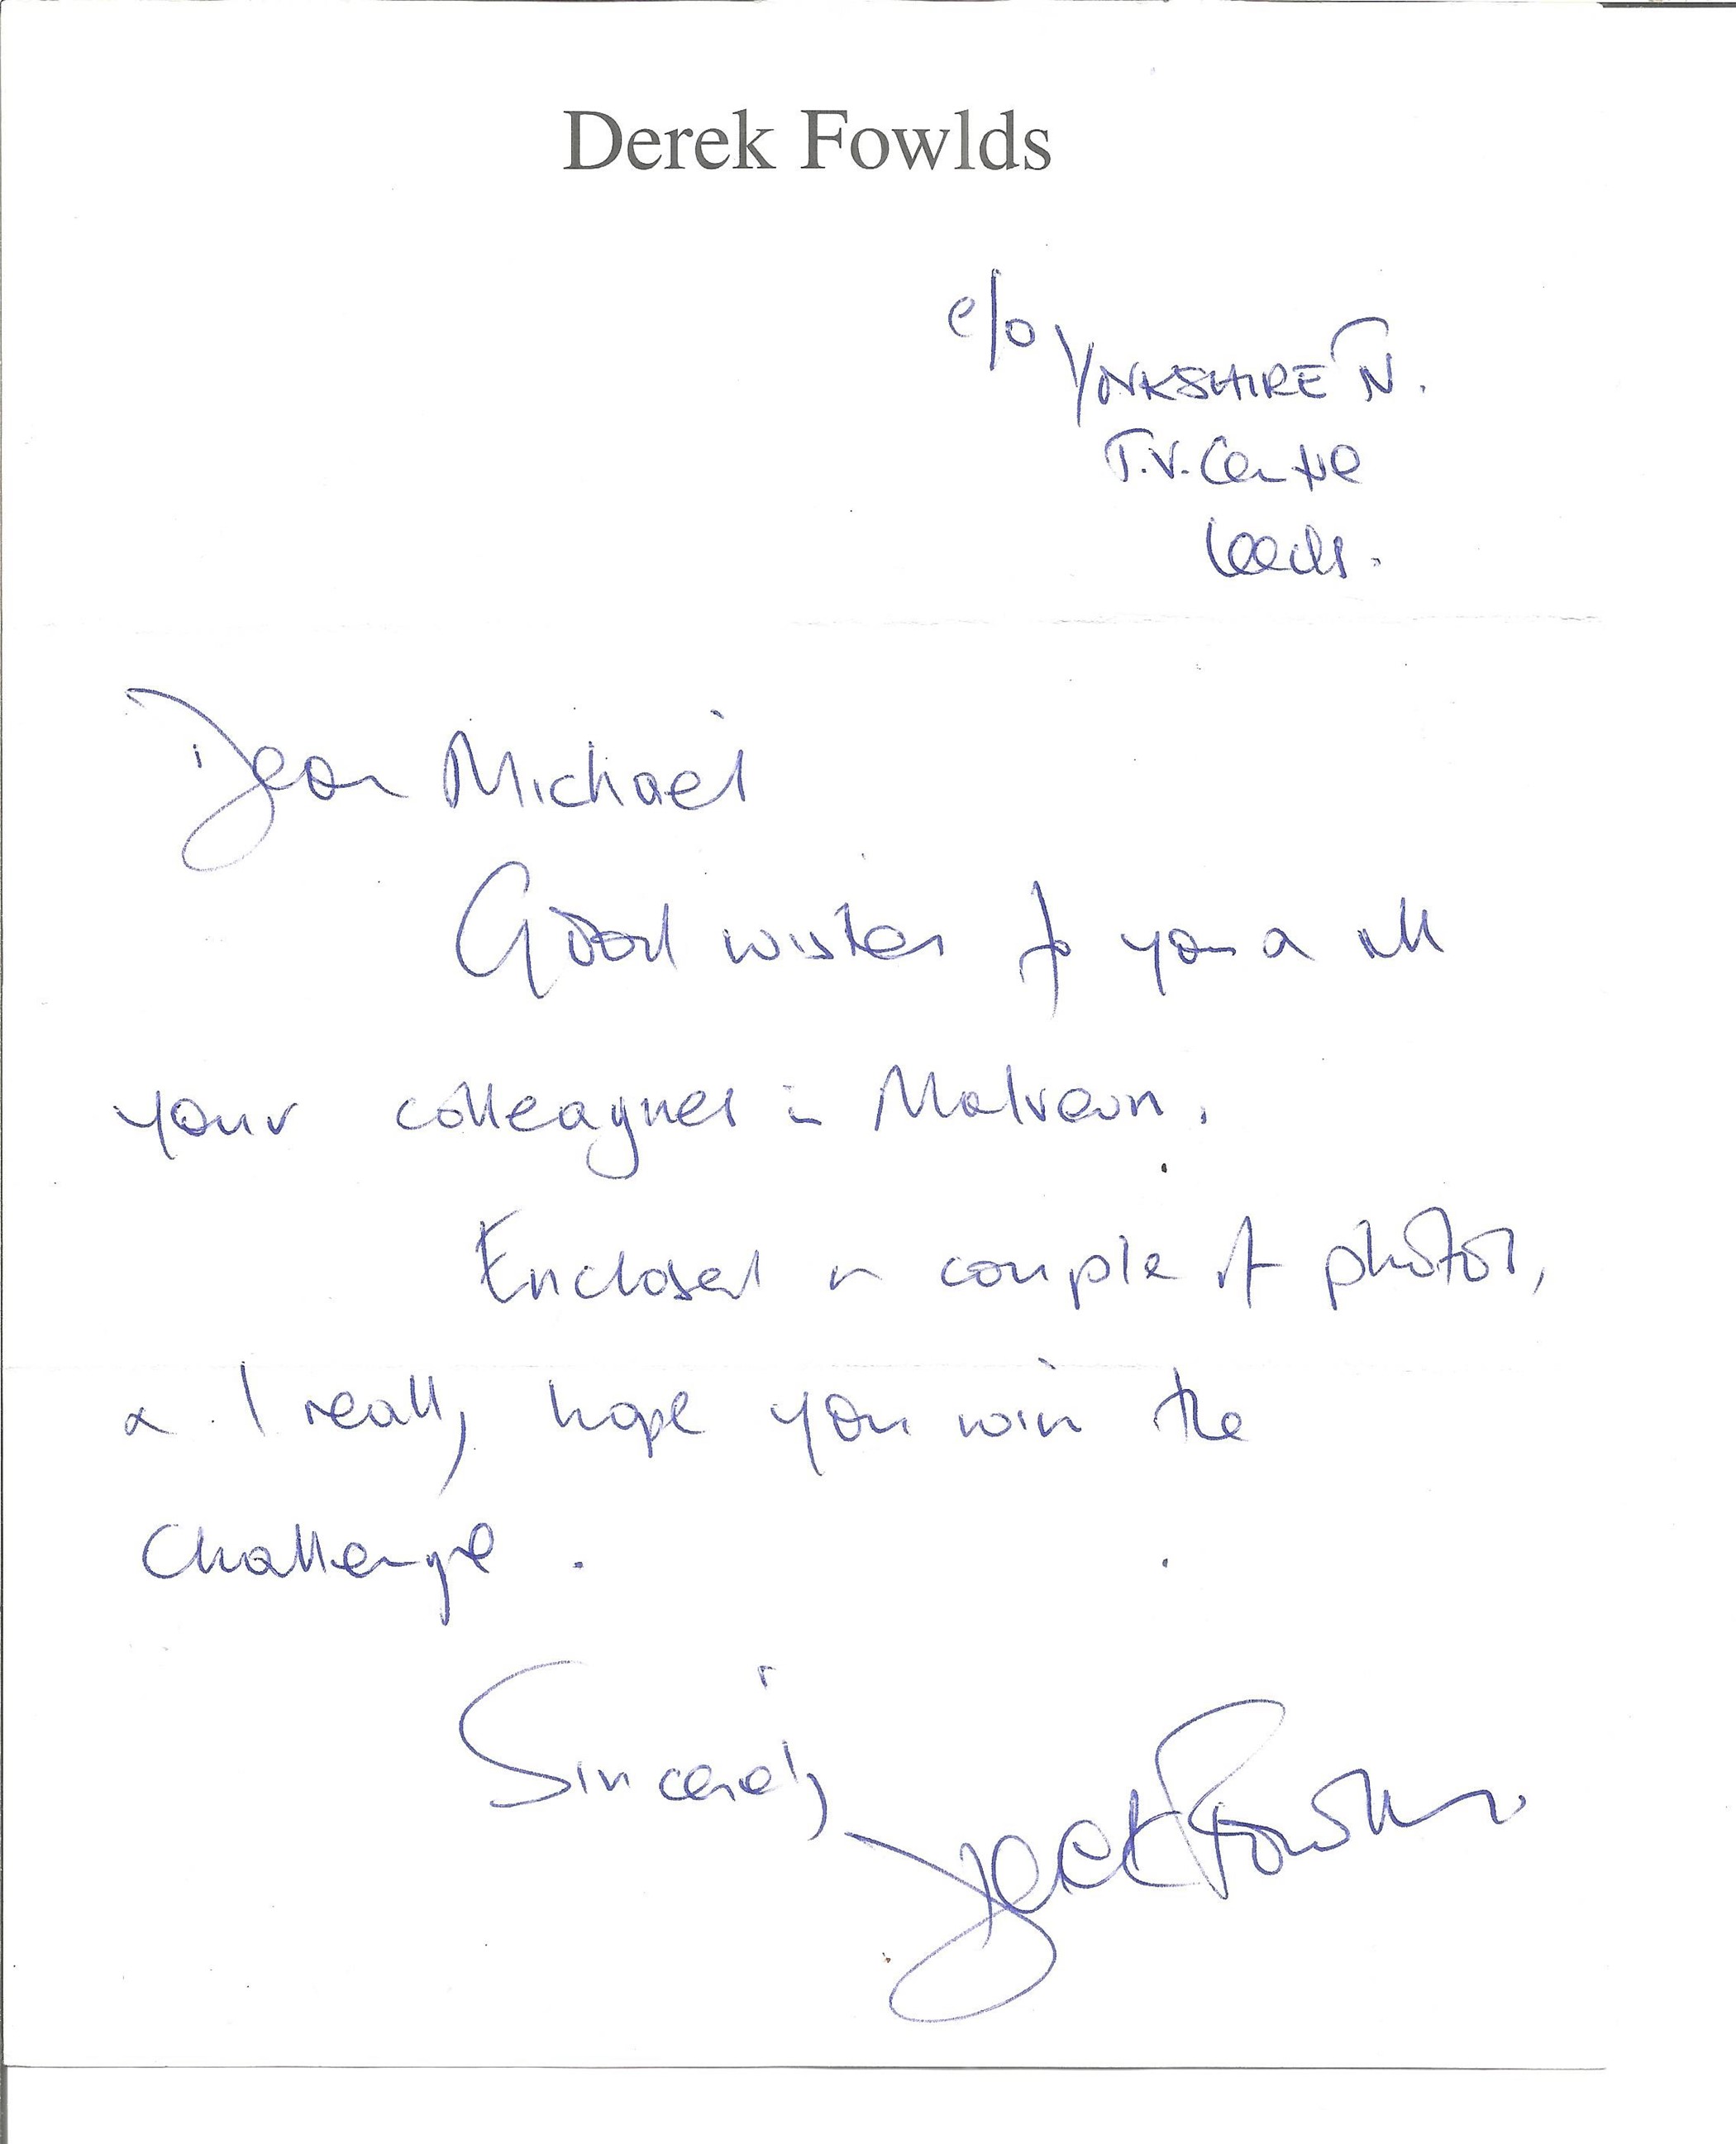 Derek Fowlds
c/o
YORKSHIRE TV.
T.V. Centre
Leeds.
Dear Michael
Good wishes to you & all
your colleagues in Malvern.
Enclosed a couple of photos,
& I really hope you win the
Challenge.
Sincerely
Derek Fowlds